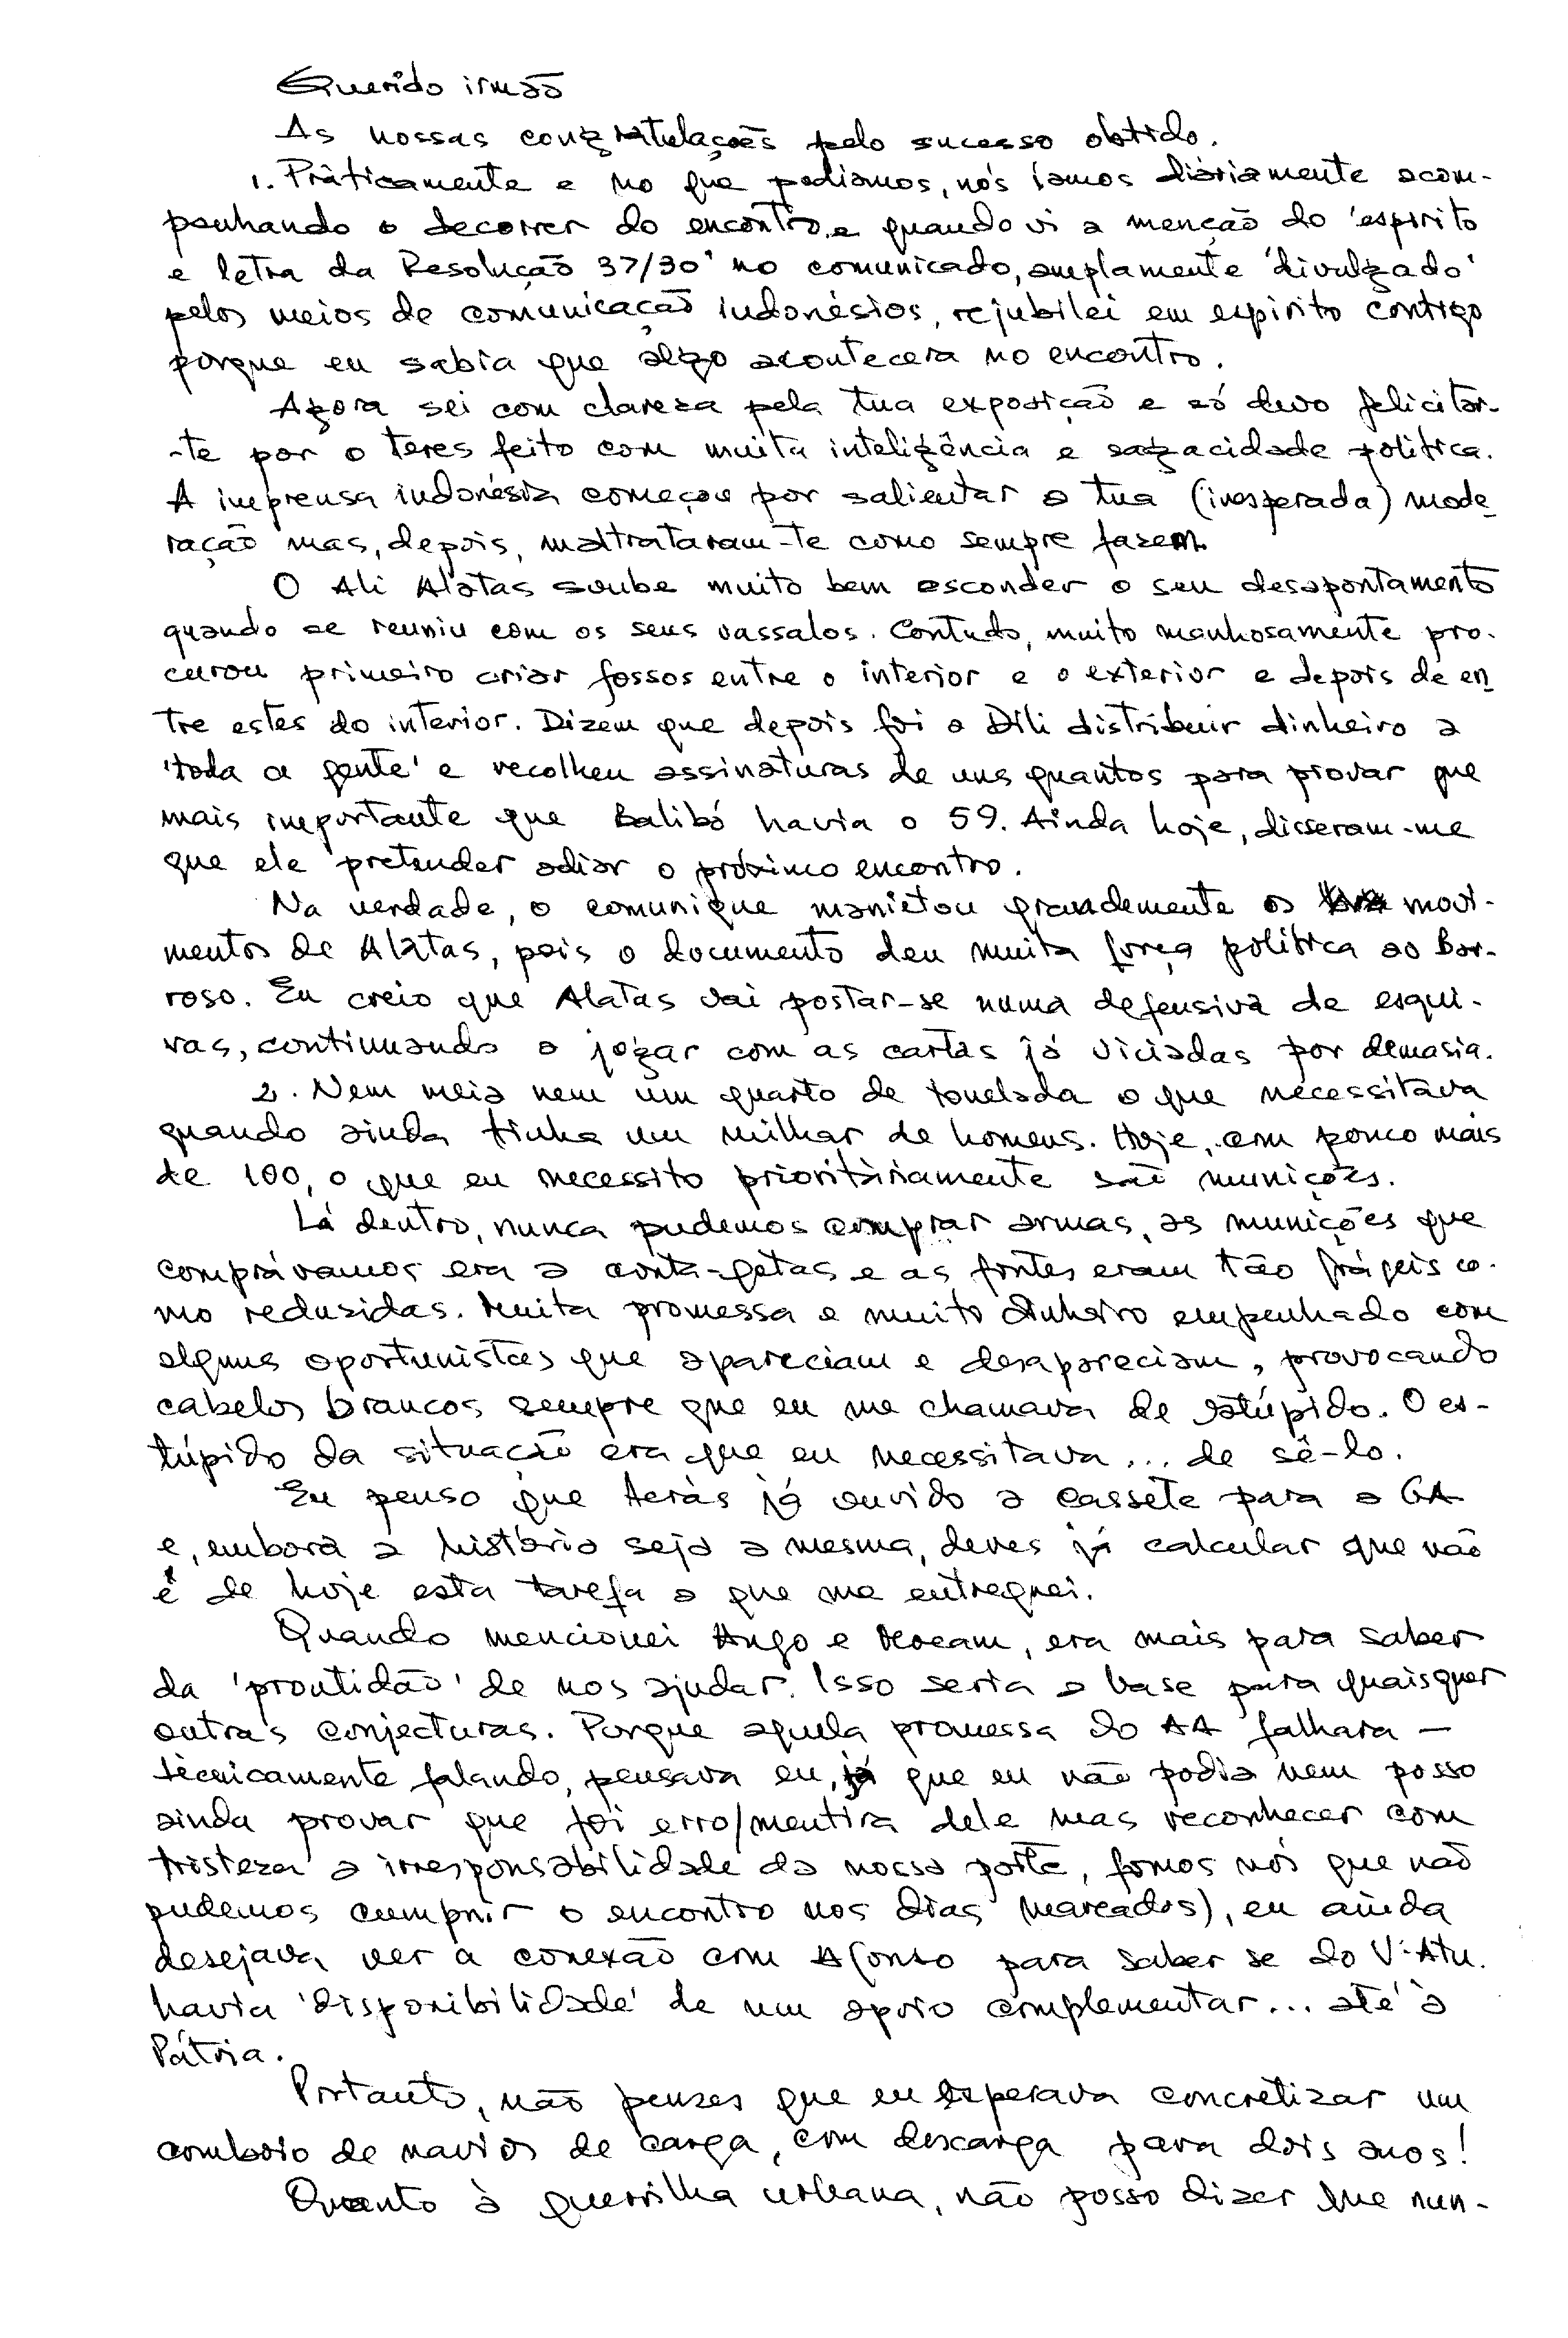 Querido irmão
As nossas congratulações pelo sucesso obtido.
1. Pràticamente e no que podíamos, nós íamos diàriamente acom-
panhando o decorrer do encontro e quando vi a menção do 'espírito
e letra da Resolução 37/30' no comunicado, amplamente 'divulgado'
pelos meios de comunicação indonésios, rejubilei em espírito contigo
porque eu sabia que algo acontecera no encontro.
Agora sei com clareza pela tua exposição e só devo felicitar-
-te por o teres feito com muita inteligência e sagacidade política.
A imprensa indonésia começou por salientar a tua (inesperada) mode_
ração mas, depois, maltrataram-te como sempre fazem.
O Ali Alatas soube muito bem esconder o seu desapontamento
quando se reuniu com os seus vassalos. Contudo, muito manhosamente pro-
curou primeiro criar fossos entre o interior e o exterior e depois de en_
tre estes do interior. Dizem que depois foi a Díli distribuir dinheiro a
'toda a gente' e recolheu assinaturas de uns quantos para provar que
mais importante que Balibó havia o 59. Ainda hoje, disseram-me
que ele pretender adiar o próximo encontro.
Na verdade, o comunique manietou grandemente os movi-
mentos de Alatas, pois o documento deu muita força política ao Bar-
roso. Eu creio que Alatas vai postar-se numa defensiva de esqui-
vas, continuando a jogar com as cartas já viciadas por demasia.
2. Nem meia nem um quarto de tonelada o que necessitava
quando ainda tinha um milhar de homens. Hoje, com pouco mais
de 100, o que eu necessito prioritàriamente são munições.
Lá dentro, nunca pudemos comprar armas, as munições que
comprávamos era a conta-gotas e as fontes eram tão frágeis co-
mo reduzidas. Muita promessa e muito dinheiro empenhado com
alguns oportunistas que apareciam e desapareciam, provocando
cabelos brancos sempre que eu me chamava de estúpido. O es-
túpido da situação era que eu necessitava... de sê-lo.
Eu penso que terás já ouvido a cassete para o GA
e, embora a história seja a mesma, deves já calcular que não
é de hoje esta tarefa a que me entreguei.
Quando mencionei Ango e Mocam, era mais para saber
da 'prontidão' de nos ajudar. Isso seria a base para quaisquer
outras conjecturas. Porque aquela promessa do AA falhara —
tècnicamente falando, pensava eu, já que eu não podia nem posso
ainda provar que foi erro/mentira dele mas reconhecer com
tristeza a irresponsabilidade da nossa parte, fomos nós que não
pudemos cumprir o encontro nos dias marcados), eu ainda
desejava ver a conexão com Afonso para saber se do V-Atu.
havia 'disponibilidade' de um apoio complementar... até à
Pátria.
Portanto, não penses que eu esperava concretizar um
comboio de navios de carga, com descarga para dois anos!
Quanto à guerrilha urbana, não posso dizer que nun-